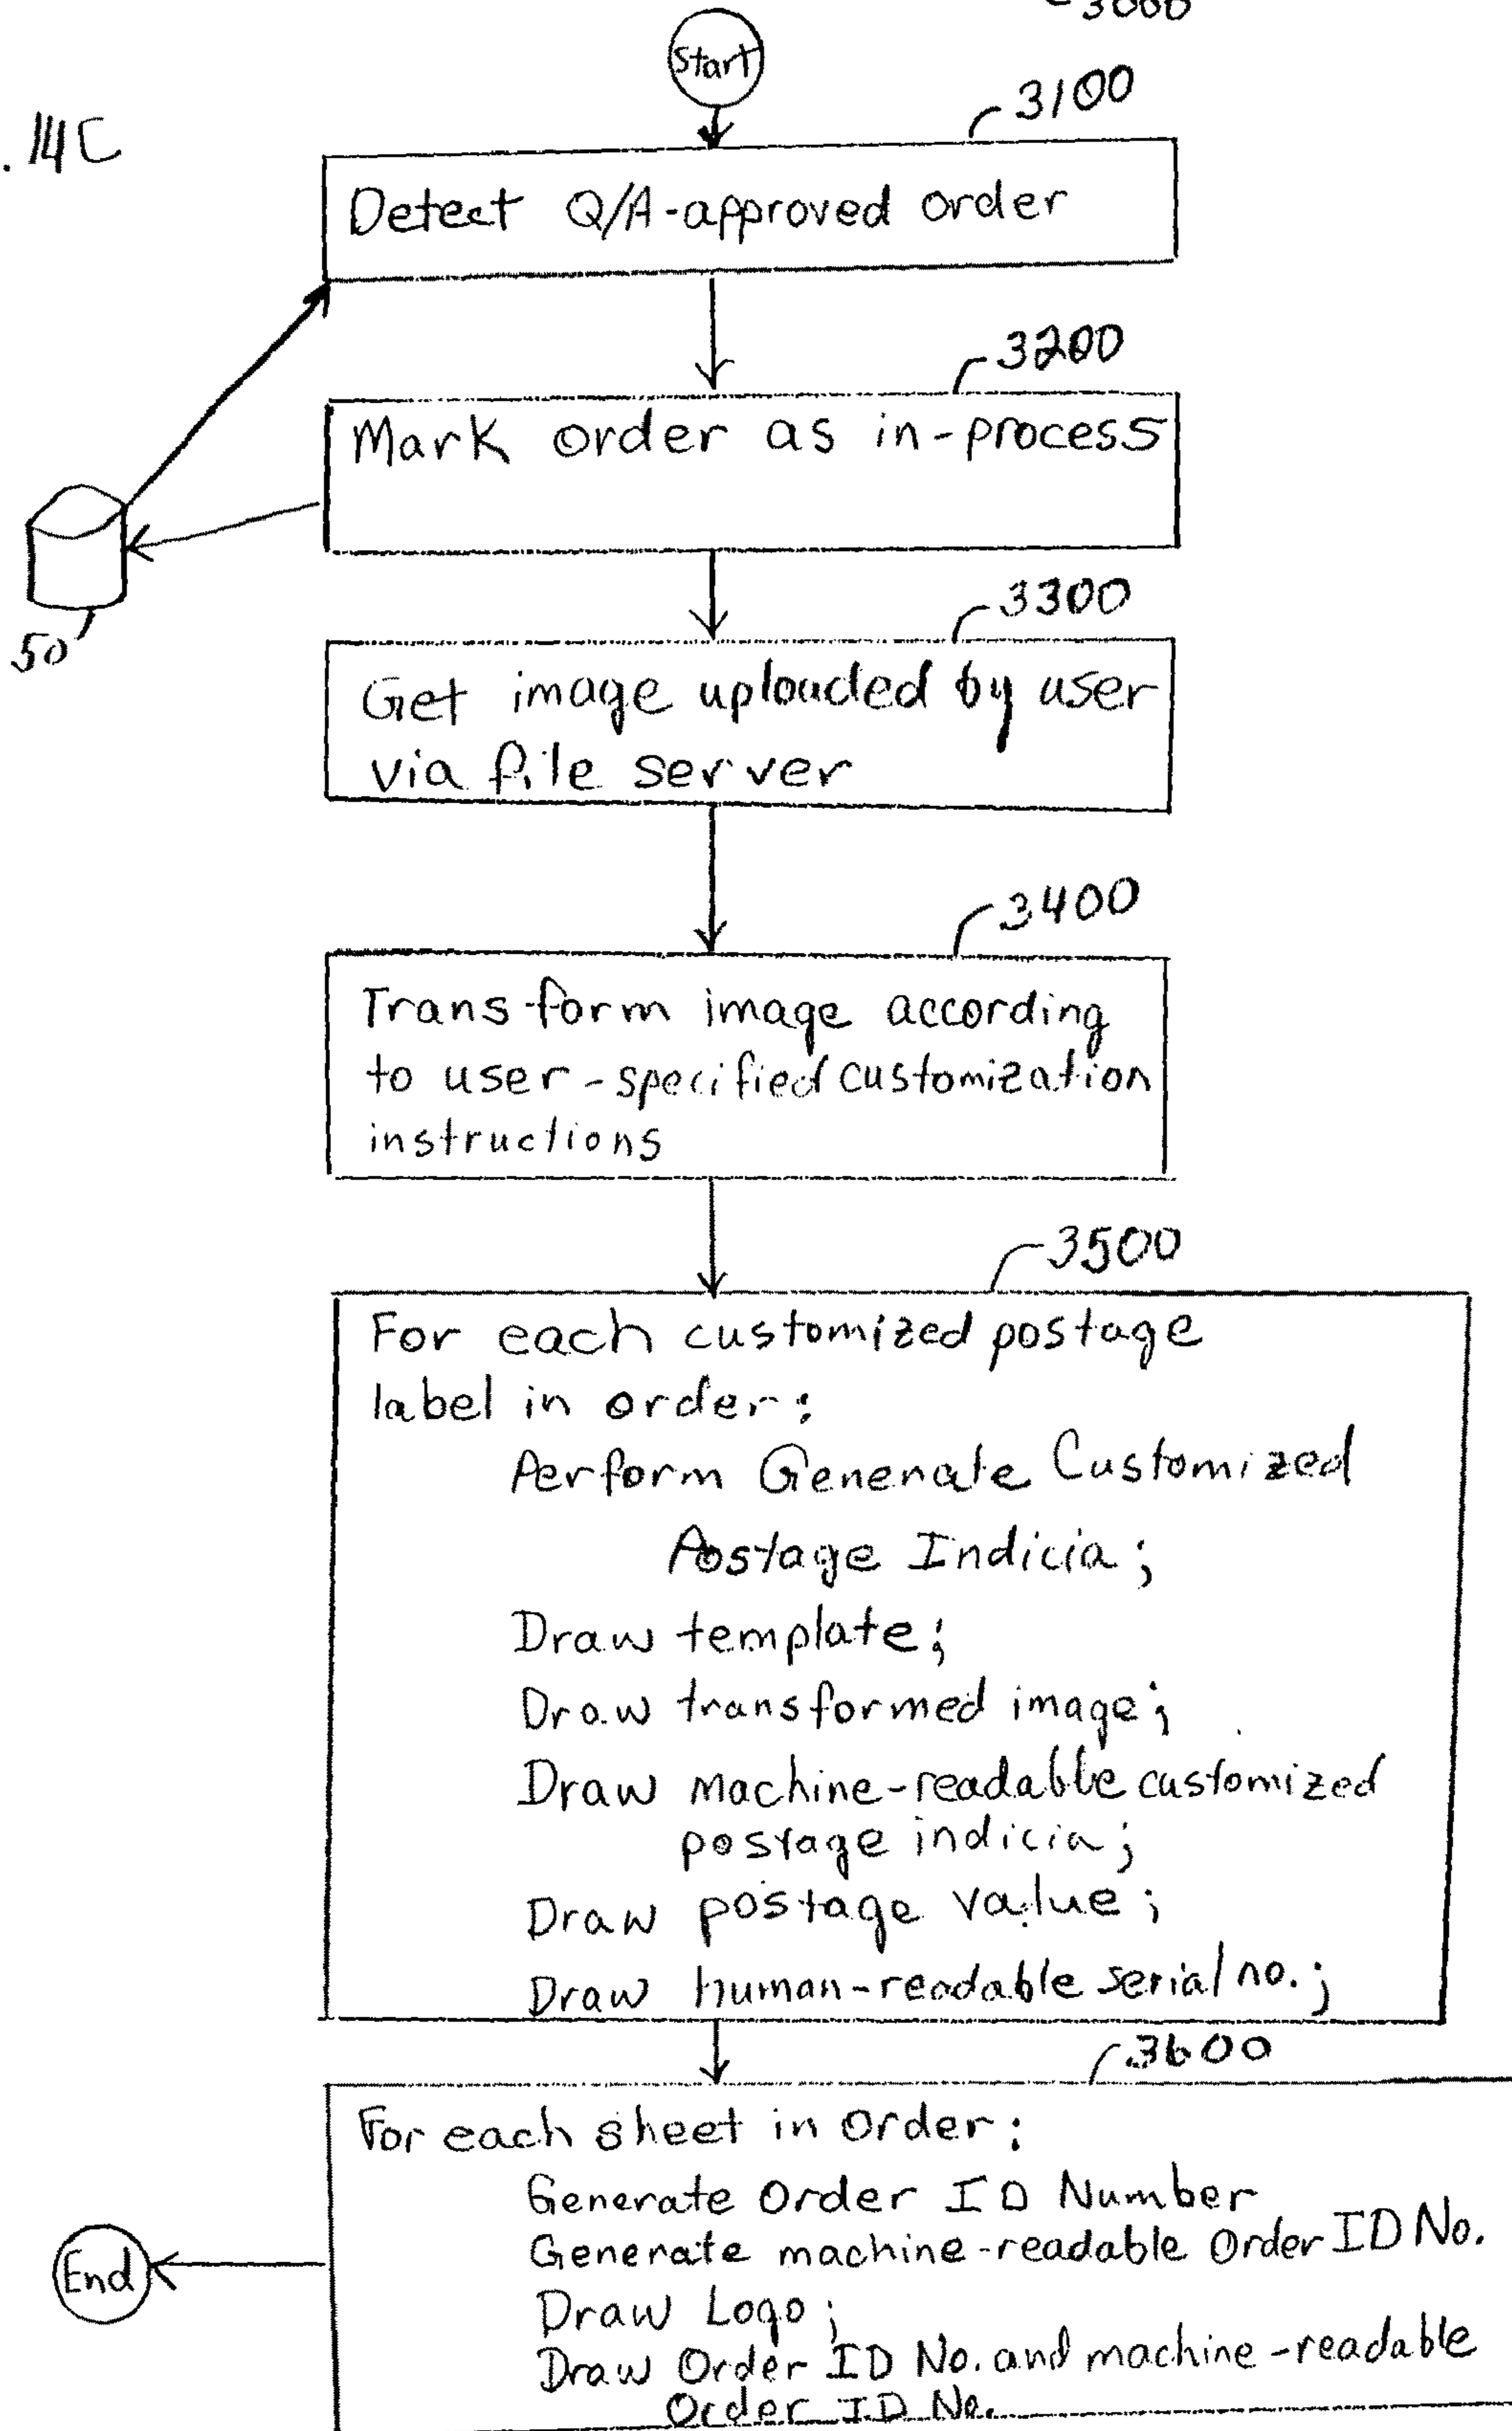 3000
Start
. 14C
3100
Detect Q/A-approved order
3200
Mark order as in-process
50
3300
Get image uploaded by user
via file server
3400
Transform image according
to user-specified customization
instructions
3500
For each customized postage
label in order:
Perform Generate Customized
Postage Indicia;
Draw template;
Draw transformed image;
Draw machine-readable customized
postage indicia;
Draw postage value;
Draw human-readable serial no.;
3600
For each sheet in Order:
Generate Order ID Number
Generate machine-readable Order ID No.
End
Draw Logo;
Draw Order ID No. and machine-readable
Order ID No.